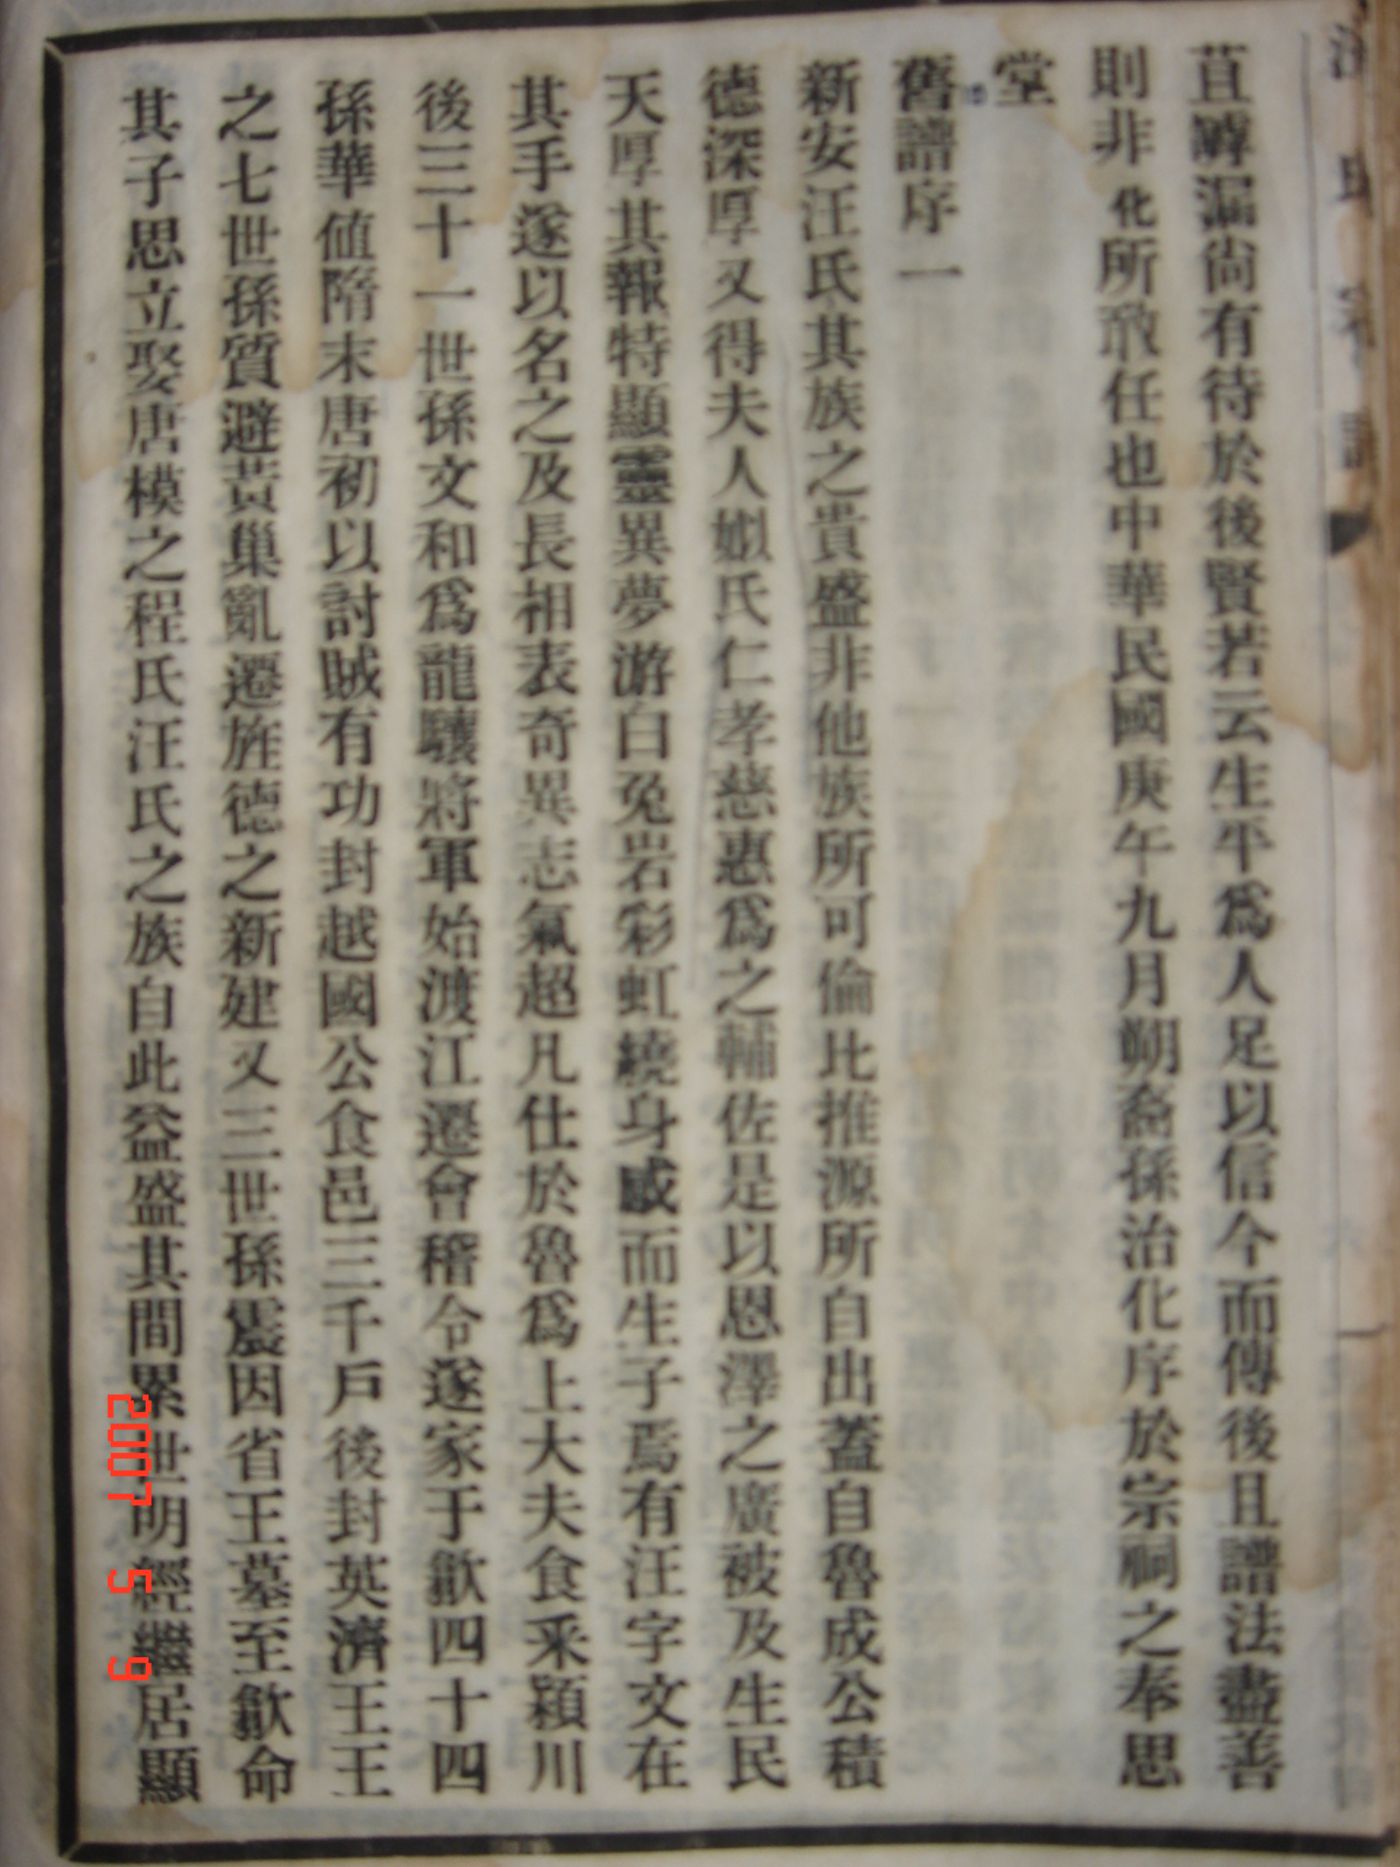 苴罅漏尙有待於後賢若云生平爲人足以信今而傳後且譜法盡善
則非化所敢任也中華民國庚午九月朔裔孫治化序於宗祠之奉思
堂
舊譜序一
新安汪氏其族之貴盛非他族所可倫比推源所自出蓋自魯成公積
德深厚又得夫人姒氏仁孝慈惠爲之輔佐是以恩澤之廣被及生民
天厚其報特顯靈異夢游白兔岩彩虹繞身感而生子焉有汪字文在
其手遂以名之及長相表奇異志氣超凡仕於魯爲上大夫食釆潁川
後三十一世孫文和爲龍驤將軍始渡江遷會稽令遂家于歙四十四
孫華值隋末唐初以討賊有功封越國公食邑三千戶後封英濟王王
之七世孫質避黃巢亂遷旌德之新建又三世孫震因省王墓至歙命
其子思立娶唐模之程氏汪氏之族自此益盛其間累世明經繼居顯
2007 5 9